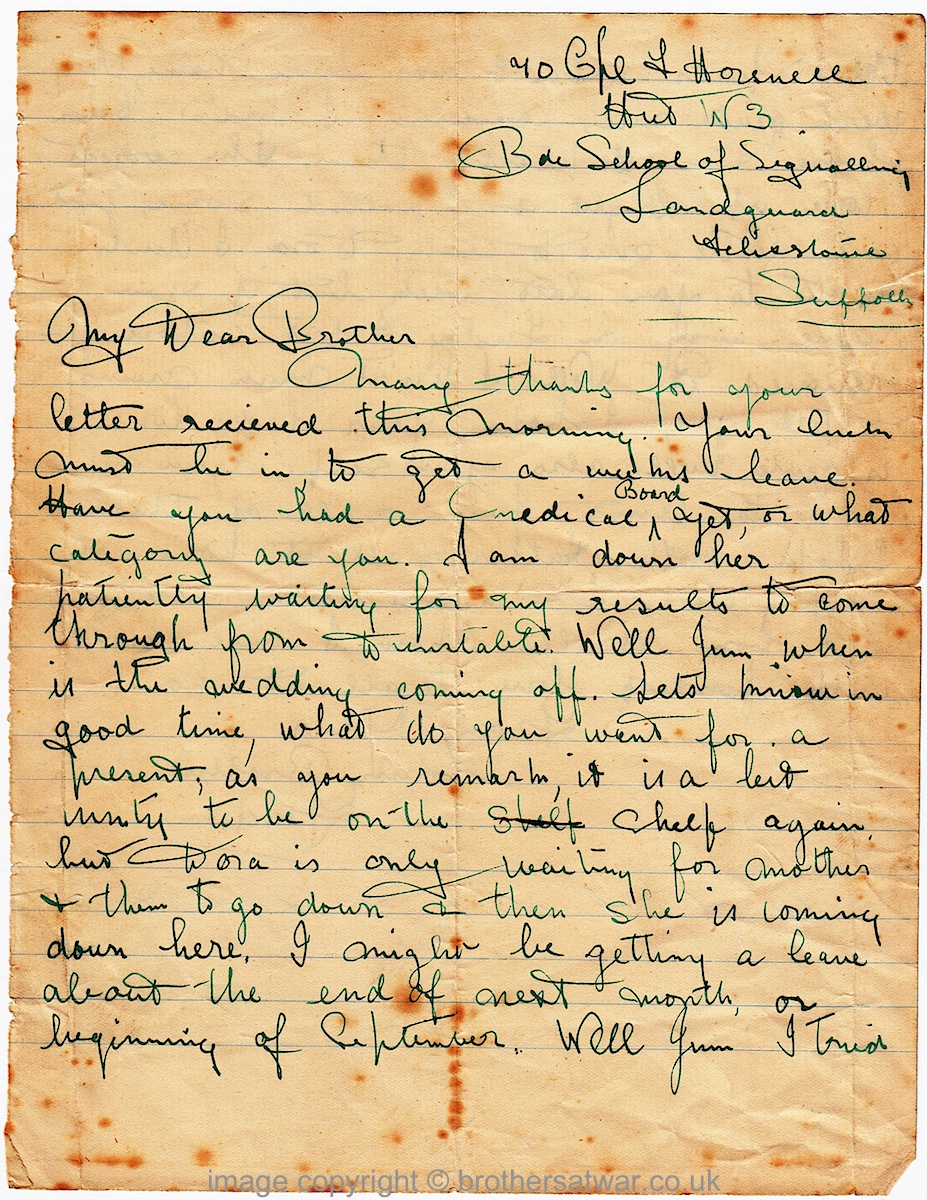 40 Cpl F Horsnell
Hut N 3
Bde School of Signalling
Landguard
Felixstowe
Suffolk
My Dear Brother
Many thanks for your
letter recieved this Morning. Your luck
must be in, to get a weeks leave.
Have you had a Medical Board yet, or what
category are you. I am down her
patiently waiting for my results to come
through from Dunstable. Well Jum when
is the wedding coming off. Lets know in
good time, what do you want for a
present, as you remark, it is a bit
to be on the shelf Chelf again,
but Dora is only waiting for Mother
& them to go down & then she is coming
down here. I might be getting a leave
about the end of next month, or
beginning of September. Well Jum I tried
image copyright © brothersatwar.co.uk